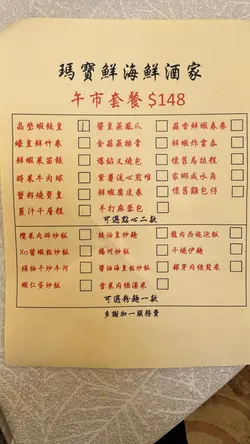 瑪寶鮮海鮮酒家
午市套餐$148
晶瑩蝦餃皇 醬皇蒸鳳爪 蒜香鮮蝦春卷
蠔皇鮮竹卷 金蒜蒸排骨 鮮蝦炸雲吞
鮮蝦菜苗餃 爆餡叉燒包 懷舊馬拉糕
時菜牛肉球 紫薯流心煎堆 家鄉咸水角
蟹籽燒賣皇 鮮蝦腐皮卷 懷舊雞包仔
薑汁千層糕 手打麻蓉包
可選點心二款
欖菜肉碎炒飯 豉油皇炒麵 龍肉西炮泡飯
Xo醬蝦粒炒飯 揚州炒飯 干燒伊麵
頭抽干炒牛河 醬油海皇粒炒飯 銀芽肉絲煎米
蝦仁蛋炒飯 雪菜肉絲湯米
可選粉麵一款
多謝加一服務費